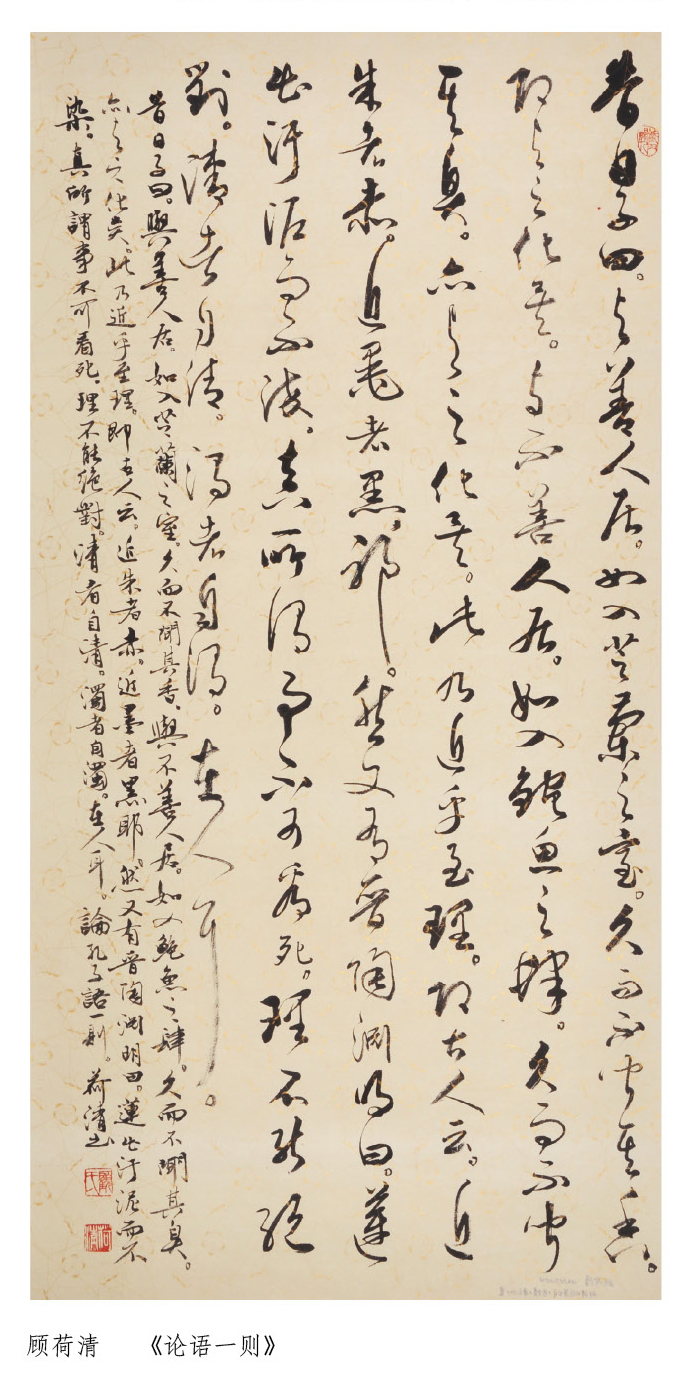 昔日子曰。与善人居。如入芝蘭之室。久而不聞其香。
即与之化矣。与不善人居。如入鮑魚之肆。久而不聞
其臭。亦与之化矣。此乃近乎至理。即古人云。近
朱者赤。近墨者黑耶。然又有晉陶渊明曰。蓮
出汙泥而不染。真所謂事不可看死。理不能絕
對。清者自清。濁者自濁。在人耳。
昔日子曰。與善人居。如入芝蘭之室。久而不聞其香、與不善人居。如入鮑魚之肆。久而不聞其臭。
亦与之化矣。此乃近乎至理。即古人云。近朱者赤。近墨者黑耶。然又有晉陶渊明曰。蓮出汙泥而不
染。真所謂事不可看死。理不能絕對。清者自清。濁者自濁。在人耳。論孔子語一則。荷清书
顧氏
荷清
顾荷清 《论语一则》